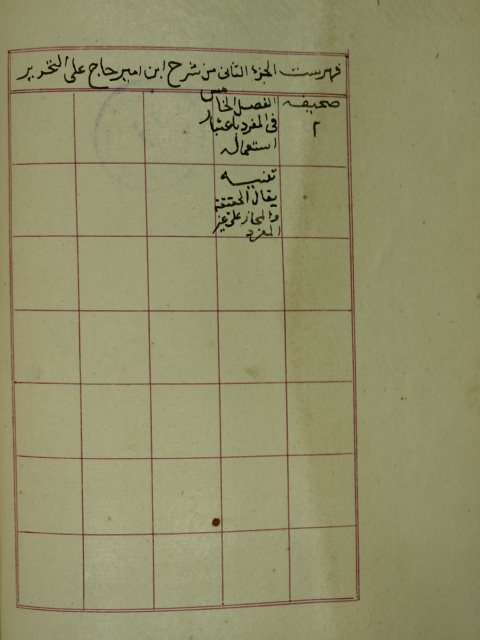 فهرست الجزء الثانى من شرح ابن امير حاج على التحرير
صحيفه
٢
الفصل الخامس
فى المفرد باعتبار
استعماله
تنبيه
يقال الحقيقة
والمجاز على غير
المفرد